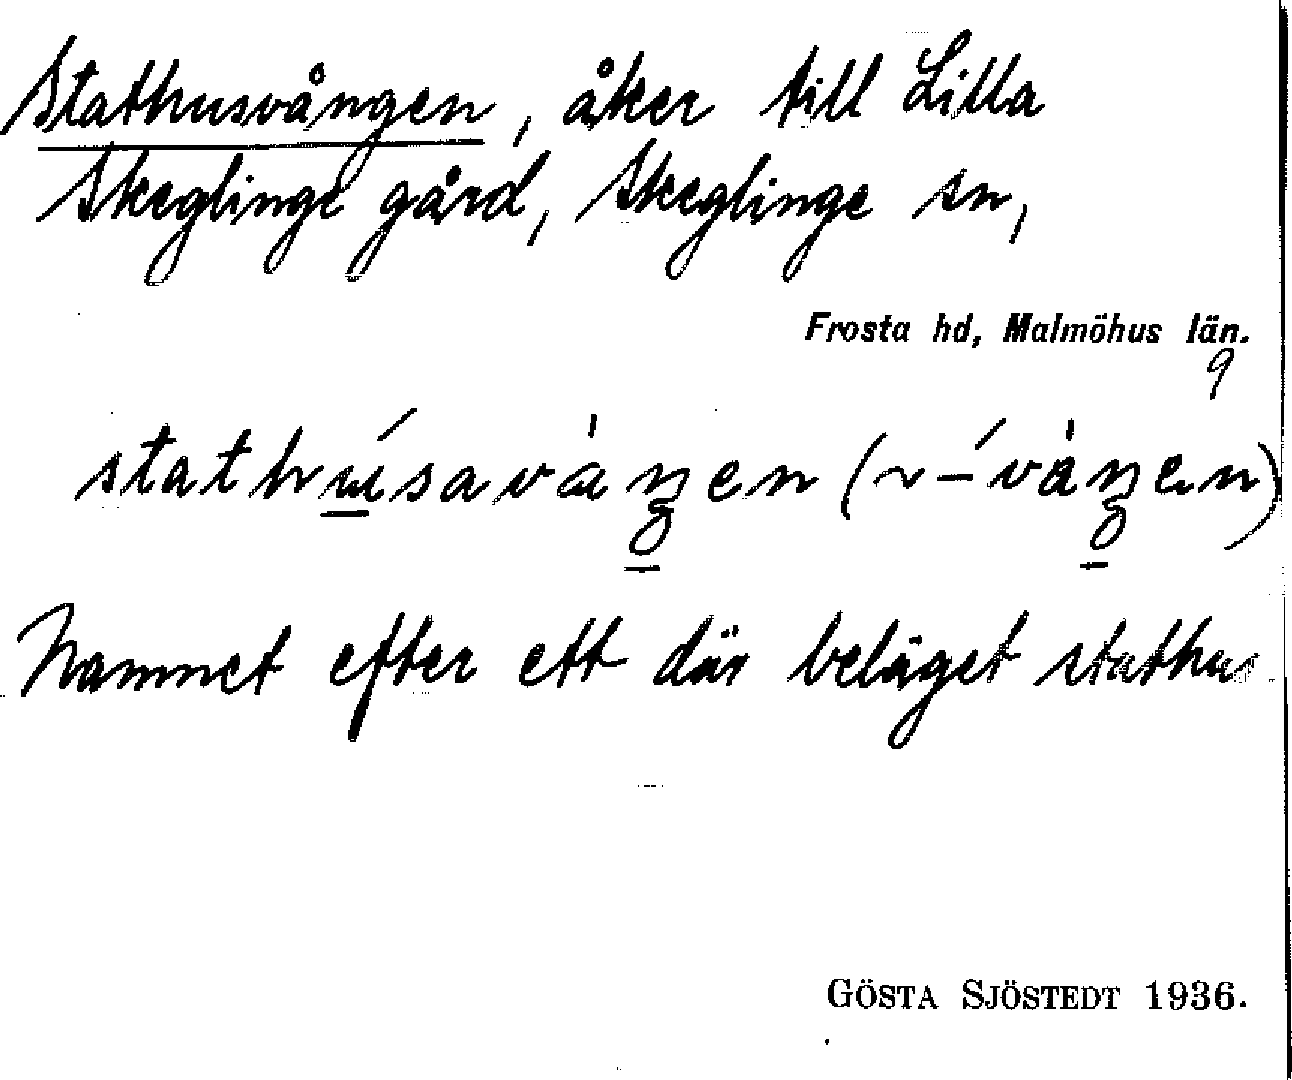 Stathusvången, åker till Lilla
Skeglinge gård, Skeglinge sn,
Frosta hd, Malmöhus län.
9
Namnet efter ett där beläget stathus
GÖSTA SJÖSTEDT 1936.